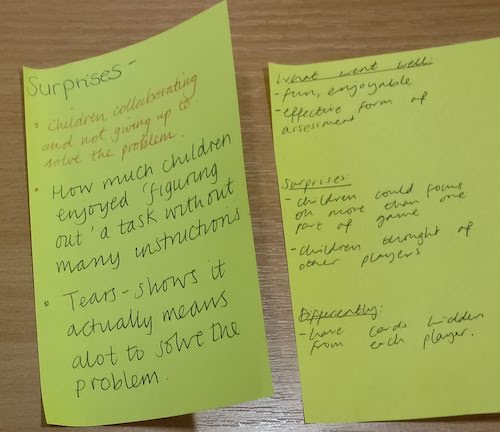 Surprises -
• Children collaborating
and not giving up to
solve the problem.
• How much children
enjoyed 'figuring
out' a task without
many instructions
• Tears - shows it
actually means
alot to solve the
problem.
What went well:
- fun, enjoyable
- effective form of
assesment
Surprises:
- children could focus
on more than one
part of game
- children thought of
other players
Differently:
- have cards hidden
from each player.